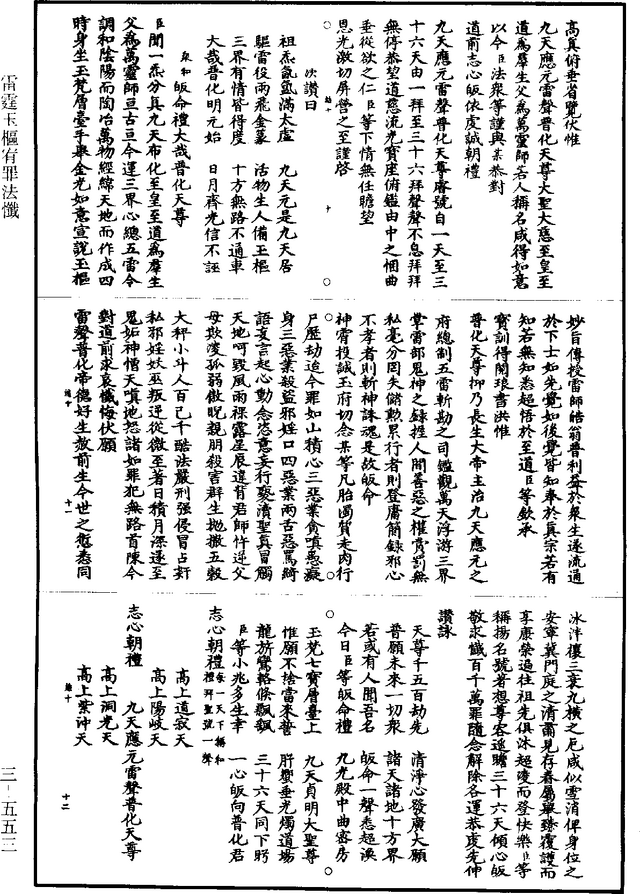 雷霆玉樞宥罪法懺
三-五五三
高真俯垂省覽伏惟
九天應元雷聲普化天尊大聖大慈至皇至
道為羣生父為萬靈師若人稱名咸得如意
以今臣法眾等謹與某恭對
道前志心皈依虔誠朝禮
九天應元雷聲普化天尊睿號自一天至三
十六天由一拜至三十六拜聲聲不息拜拜
無停恭望道慈流光寶座俯鑑由中之悃曲
垂從欲之仁臣等下情無任瞻望
恩光激切屏營之至謹啓
次讚曰
祖炁氤氳滿太虛 九天元是九天居
驅雷役雨飛金篆 活物生人備玉樞
三界有情皆得度 十方無路不通車
大哉普化明元始 日月齊光信不誣
眾和 皈命禮大哉普化天尊
臣聞一炁分真九天布化至皇至道為羣生
父為萬靈師亘古亘今運三界心總五雷令
調和陰陽而陶冶萬物經綸天地而作成四
時身坐玉梵層臺手舉金光如意宣說玉樞
妙旨傳授雷師皓翁普利益於眾生遂流通
於下士如先覺如後覺皆知奉於真宗若有
知若無知悉超悟於至道臣等欽承
寶訓得閱琅書洪惟
普化天尊抑乃長生大帝主治九天應元之
府總制五雷斬勘之司鑑觀萬天浮游三界
掌雷部鬼神之錄握人間善惡之權賞罰無
私毫分罔失儲勲累行者則登庸簡錄邪心
不孝者則斬神誅魂是故皈命
神霄投誠玉府切念某等凡胎濁質走肉行
尸歷劫迄今罪如山積心三惡業貪嗔愚癡
身三惡業殺盜邪婬口四惡業兩舌惡罵綺
語妄言起心動念恣意妄行褻瀆聖真冒觸
天地呵毀風雨裸露星辰違背君師忤逆父
母欺凌孤弱傲睨親朋殺害群生拋撒五穀
大秤小斗人百己千酷法嚴刑强侵冒占奸
私邪婬妖巫叛逆從微至著日積月深遂至
鬼妬神憎天嗔地怒諸如罪犯無路首陳今
對道前求哀懺悔伏願
雷聲普化帝德好生赦前生今世之愆悉同
冰泮禳三衰九橫之厄咸似雲消俾身位之
安寧冀門庭之清肅見存眷屬畢臻覆護而
享康榮過往祖先俱沐超陵而登快樂臣等
稱揚名號者想尊容遙瞻三十六天傾心皈
敬求懺百千萬罪隨念解除各運恭虔先伸
讚詠
天尊千五百劫先 清淨心發廣大願
普願未來一切眾 諸天諸地十方界
若或有人聞吾名 皈命一聲悉超渙
今日臣等皈命禮 九光殿中曲密房
玉梵七寶層臺上 九天貞明大聖尊
惟願不捨當來誓 肝蠁垂光燭道場
龍旂鸞輅倏飄飄 三十六天同下盼
臣等小兆多生幸 一心皈向普化君
志心朝禮 每一天下稱和禮拜聖號一聲
高上道寂天
高上陽岐天
志心朝禮 九天應元雷聲普化天尊
高上洞光天
高上紫沖天